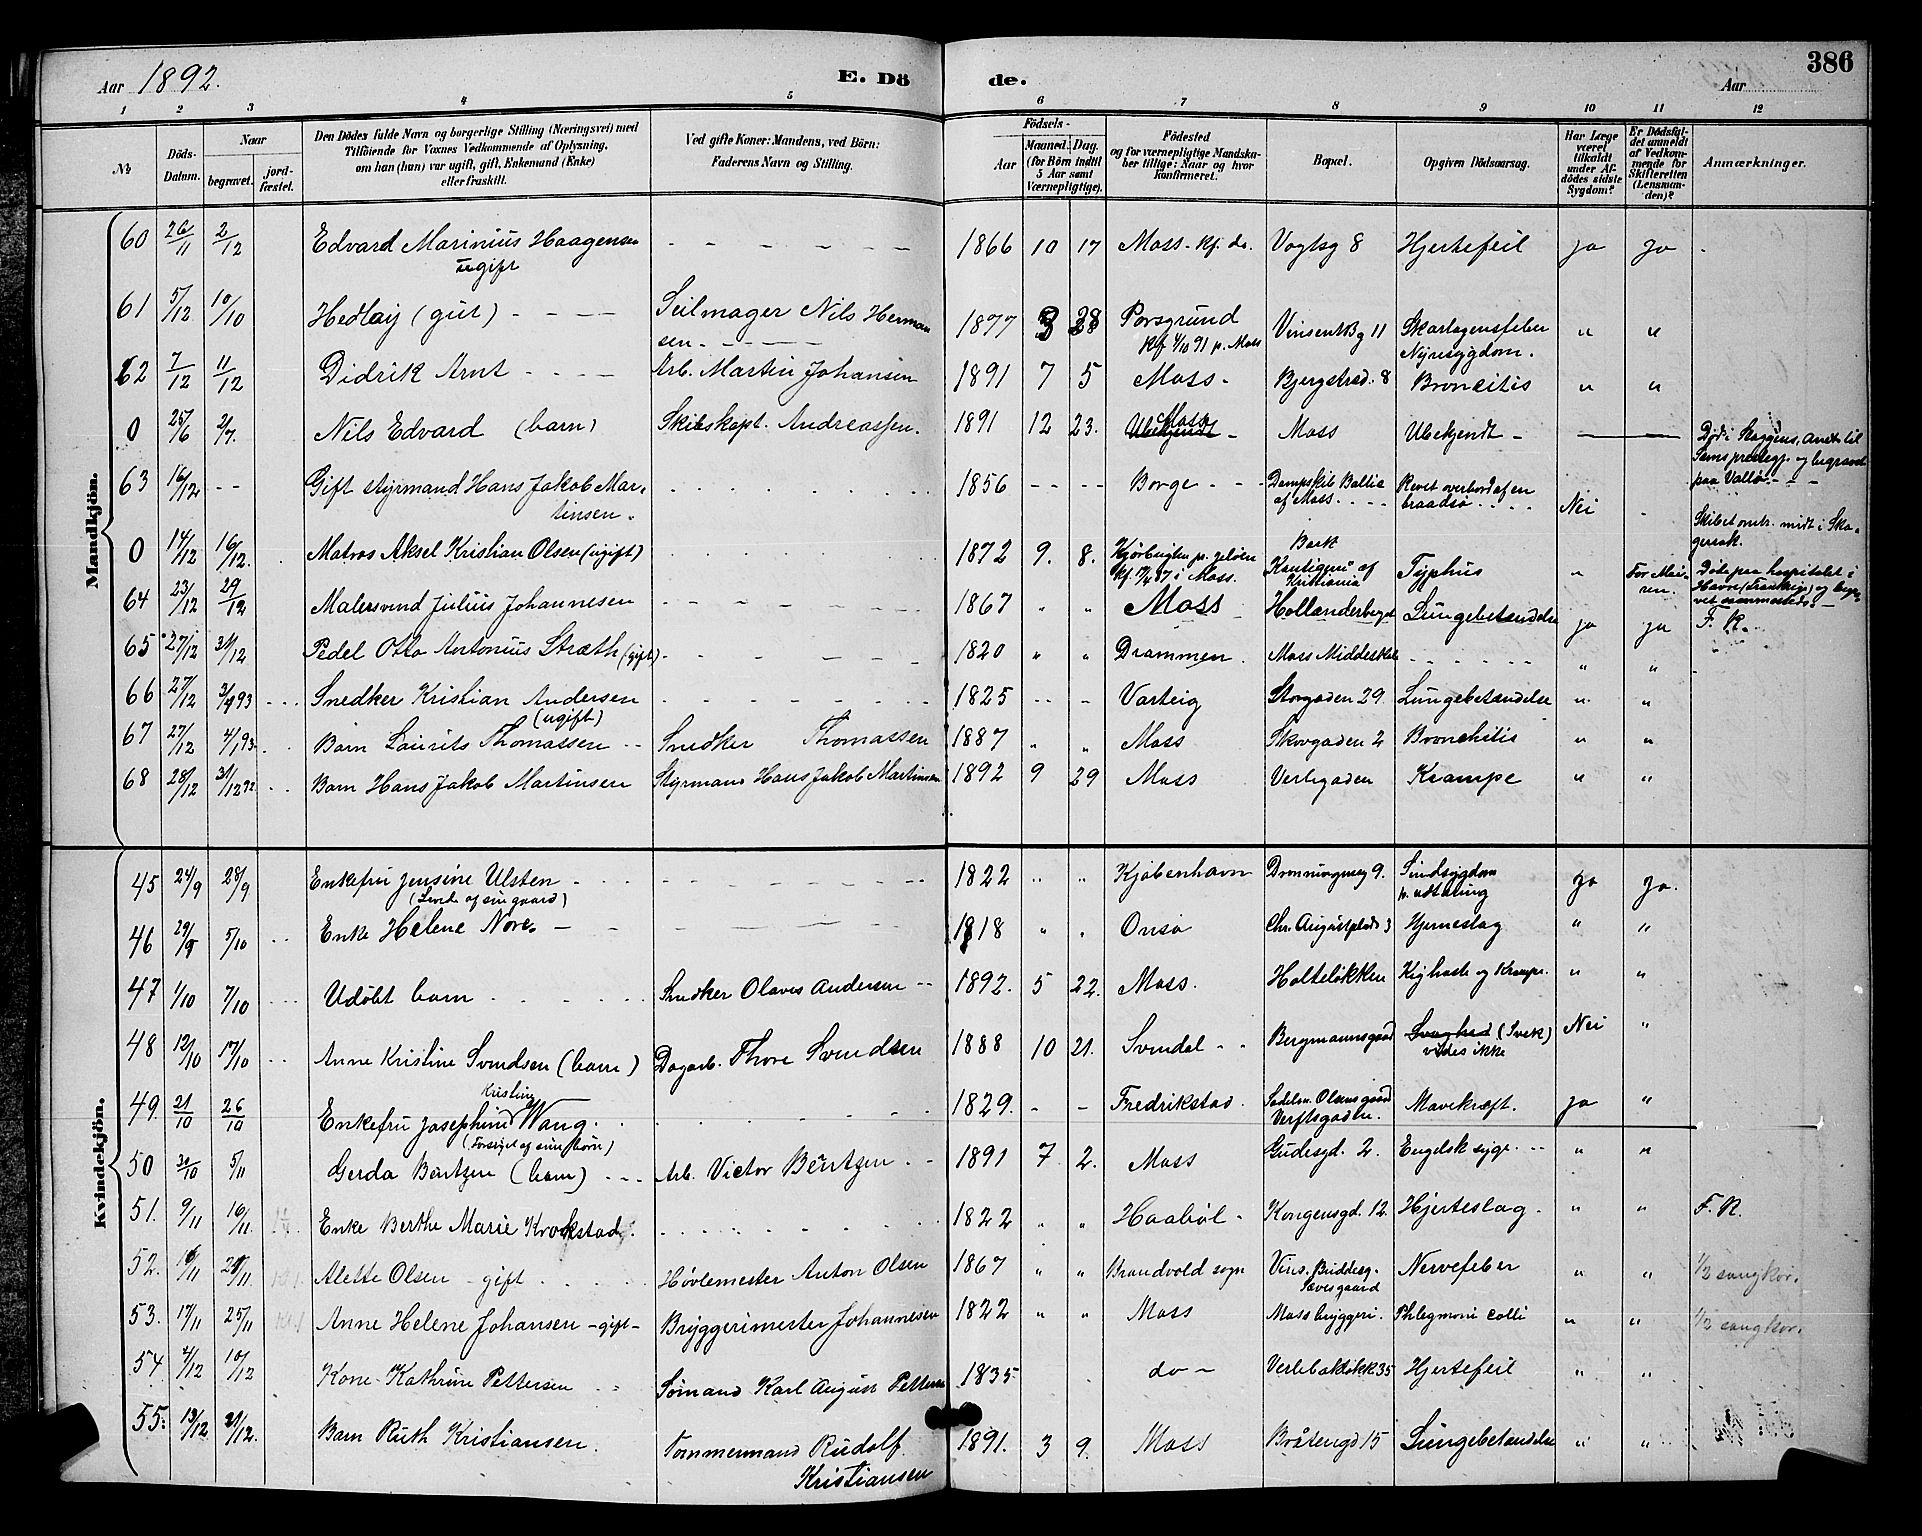 Aar 1892. E. Dö de. Aar 386
1 2 3 4 5 6 7 8 9 10 11 12
No
Döds-Datum.
Naar begravet. jordfæstet.
Den Dödes fulde Navn og borgerlige Stilling (Næringsvei) med
Tilföiende for Voxnes Vedkommende af Oplysning,
om han (hun) var ugift, gift, Enkemand (Enke)
eller fraskilt.
Ved gifte Koner: Mandens, ved Börn:
Faderens Navn og Stilling.
Födsels-
Aar Maaned. Dag.
(for Börn indtil 5 Aar samt Værnepligtige).
Födested
og for værnepligtige Mandskaber tillige: Naar og hvor konfirmeret.
Bopæl.
Opgiven Dödsaarsag.
Har Læge været tilkaldt under Afdödes sidste Sygdom?
Er Dödsfaldet anmeldt af Vedkommende for Skifteretten (Lensmanden)?
Anmærkninger.
Mandkjön.
60 26/11 2/12 Edvard Marinius Haagensen ugift 1866 10 17 Moss - kf. do. Vogtsg 8 Hjertefeil ja ja
61 5/12 10/10 Hedley (gut) Seilmager Nils Hermansen 1877 3 28 Porsgrund kf 4/10 91 p. Moss Vinsents Bg 11 Skarlagensfeber Nyresygdom. " "
62 7/12 11/12 Didrik Arnt Arb. Martin Johansen 1891 7 5 Moss Bjergstræd. 8 Broncitis " "
0 25/6 2/7 Nils Edvard (barn) Skibskapt. Andreassen. 1891 12 23. Ubekjendt Moss Moss Ubekjendt Død i Skaggens, Andt. til Sems prestegj. og begravet paa Vallø
63 16/12 Gift styrmand Hans Jakob Martensen 1856 Borge Dampskib Baltic af Moss Revet overbord af en braadsø Nei Skibet omtr. midt i Skagerrak.
0 14/12 16/12 Matros Aksel Kristian Olsen (ugift) 1872 9. 8. p. Jeløen kf. 87 i Moss. Bark af Kristiania Typhus " Døde paa hospitalet i Havre (Frankrige) og begravet sammesteds.
64 23/12 29/12 Malersvend Julius Johannesen 1867 " " Moss Hollenderbyget Lungebetændelse ja ja F. R.
65 27/12 31/12 Pedel Otto Antonius Stræth (gift) 1820 " " Drammen Moss Middelskole " "
66 27/12 3/1 93 Snedker Kristian Andersen (ugift) 1825 Varteig Storgaden 29 Lungebetændelse " "
67 27/12 4/1 93 Barn Laurits Thomassen Snedker Thomassen 1887 " " Moss Skovgaden 2 Bronchitis " "
68 28/12 31/12 92 Barn Hans Jakob Martinsen Styrmand Hans Jakob Martinsen 1892 9 29 Moss Verlegaden Krampe " "
Kvindekjön.
45 24/9 28/9 Enkefru Jensine Ulsten (Levde af sin gaard) 1822 " " Kjøbenhavn Dronningensg 9. Sindsygdom p. udtæring Ja Ja.
46 29/9 5/10 Enke Helene Nore. 1818 " " Onsø Chr. Augustplads 3 Hjerneslag " "
47 1/10 7/10 Udøbt barn Snedker Olaves Andersen 1892. 5 22. Moss. Holteløkken Kighoste og Krampe. " "
48 12/10 17/10 Anne Kristine Svendsen (barn) Dagarb. Thore Svendsen 1888 10 21. Svindal Bergmannsgaard Svaghed (Svek) vides ikke Nei "
49. 21/10 26/10 Enkefru Josephine Kristine Wang. (Forsørget af sine børn) 1829. Fredrikstad. Sadelm. Olsens gaard Verftsgaden. Mavekræft. Ja "
50 30/10 5/11 Gerda Bentzen (barn) Arb. Victor Bentzen 1891 7 2. Moss Gudesgd. 2. Engelsk syge " "
51. 9/11 16/11 Enke Berthe Marie Krokstad 1822 " " Haabøl Kongensgd. 12. Hjerteslag " " F. R.
52. 16/11 21/11 Alette Olsen - gift Høvlemester Anton Olsen 1867 " " Brandvold sogn Vins. Buddesg. Nervefeber " " 1/2 sangkor.
53. 17/11 25/11 Anne Helene Johansen - gift - Bryggerimester Johannesen 1822 " " Moss Moss bryggeri. Phlegmoni colli " " 1/2 sangkor.
54. 4/12 10/12 Kone Kathrine Pettersen Sømand Karl August Pettersen 1835 do Verlebakløkk 35 Hjertefeil " "
55. 13/12 21/12. Barn Ruth Kristiansen. Tømmermand Rudolf Kristiansen 1891. 3 9. Moss Bråtengd 15 Lungebetændelse " "